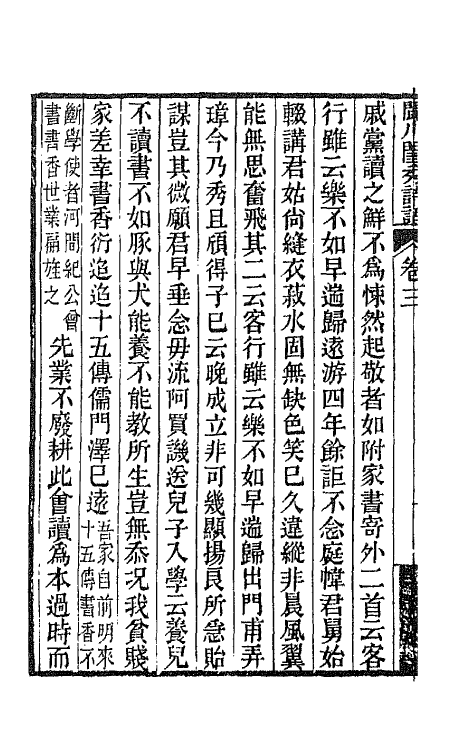 閩川閨秀詩話 卷三
戚黨讀之鮮不爲悚然起敬者如附家書寄外二首云客
行雖云樂不如早遄歸遠游四年餘詎不念庭幃君舅始
輟講君姑尙縫衣菽水固無缺色笑已久違縱非晨風翼
能無思奮飛其二云客行雖云樂不如早遄歸出門甫弄
璋今乃秀且頎得子已云晚成立非可幾顯揚良所急貽
謀豈其微願君早垂念毋流阿買譏送兒子入學云養兒
不讀書不如豚與犬能養不能教所生豈無忝況我貧賤
家差幸書香衍迨迨十五傳儒門澤已遠吾家自前明來十五傳書香不
斷學使者河間紀公曾書書香世業扁旌之先業不廢耕此會讀爲本過時而